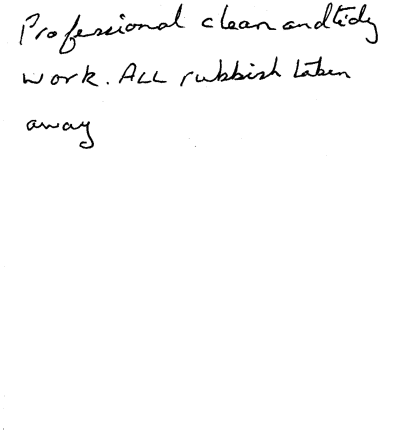 Professional clean and tidy
work. ALL rubbish taken
away